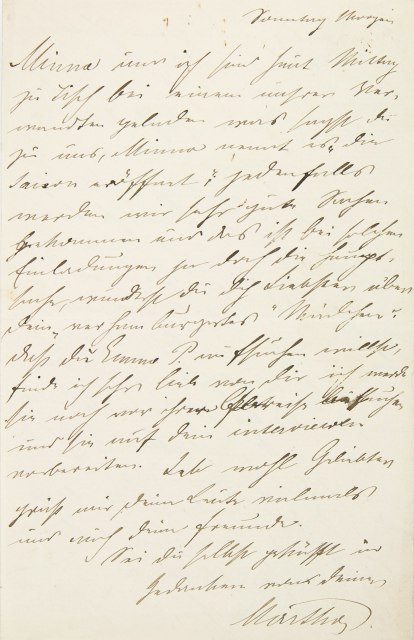 Sonntag Morgen
Minna und ich sind heut Mittag
zu Tisch bei einem unsrer Ver-
wandten geladen was sagst du
zu uns, Minna nennt es „die
Saison eröffnet“; jedenfalls
werden wir sehr gute Sachen
bekommen und das ist bei solchen
Einladungen ja doch die Haupt-
sache, wunderst du dich Liebster über
dein „verhamburgertes“
daß du Emma P aufsuchen willst,
finde ich sehr lieb von dir ich werde
sie noch vor ihrer Abreise
und sie auf dein interviewen
vorbereiten. Leb wohl Geliebter
grüß mir deine Leute vielmals
und auch deine Freunde.
Sei du selbst geküßt in
Gedanken von deiner
Martha.